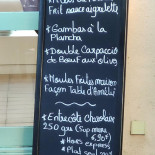 Fait sauce aigrelette
* Gambas à la
Plancha
* Double Carpaccio
de Boeuf aux olives
* Moules Faites maison
Façon Table d'Emilie
* Entrecôte Charolaise
250 grs (Sup menu
6,90€)
* Hors express
* Plat seul